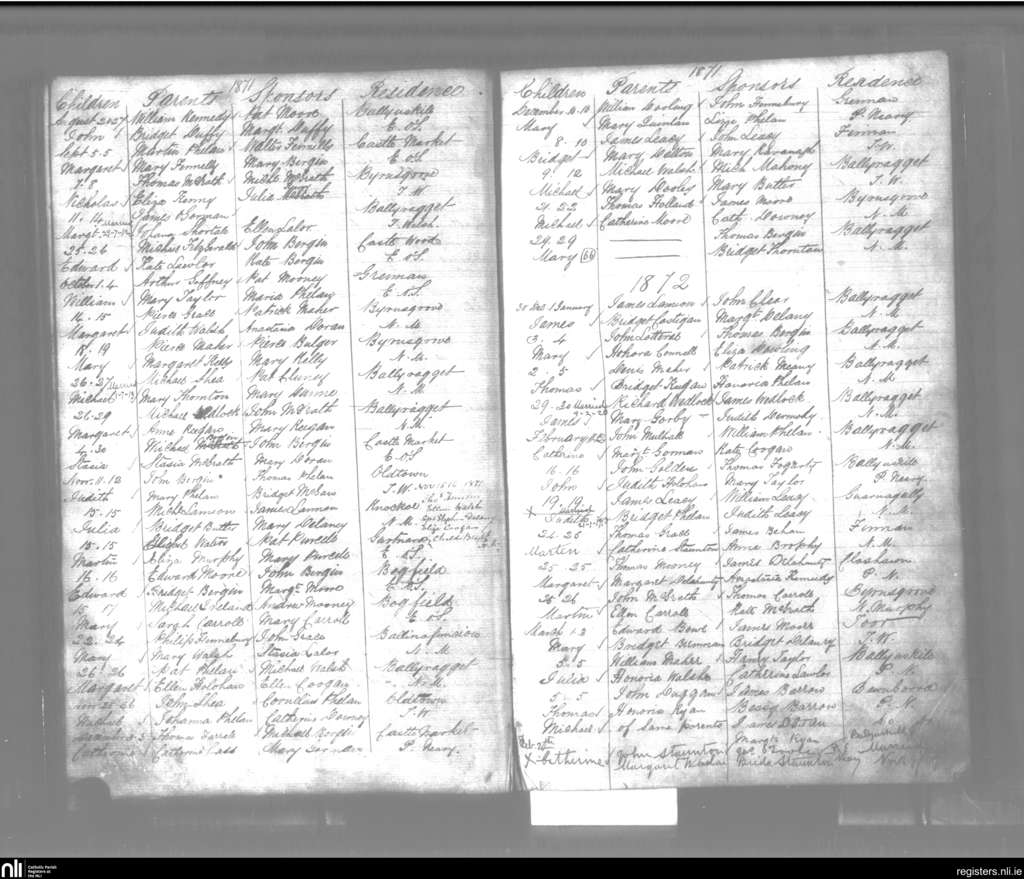 1871
Children Parents Sponsors Residence
August 20 27 William Kennedy Pat Moore Ballyuskile
John Bridget Duffy Margt Duffy E. o S.
Sept 5. 5 Martin Phelan Walter Fennelly Castle Market
Margaret Mary Fennelly Mary Bergin E. o S.
7. 8 Thomas McGrath Michl McGrath Byrnsgrove
Nicholas Eliza Kenny Julia McGrath T. W.
11. 14 James Dorman Ellen Lalor Ballyragget
Margt Shortall T. Walsh
25. 26 Michael Fitzgerald John Bergin Castle Wood
Edward Kate Lawlor Kate Bergin E. o S.
October 1. 4 Arthur Geffney Pat Mooney Grennan
William Mary Taylor Maria Phelan E. o S.
14. 15 Pierce Grace Patrick Maher Byrnsgrove
Margaret Judith Walsh Anastasia Doran N. M.
18. 19 Pierce Maher Pierce Bulger Byrnsgrove
Mary Margaret Kelly Mary Kelly N. M.
26. 27 Michael Shea Pat Cluney Ballyragget
Michael Mary Thornton Mary Dunne N. M.
26. 29 Michael John McGrath Ballyragget
Margaret Anne Keegan Mary Keegan N. M.
4. 30 Michael John Bergin Castle Market
Stasia Stasia McGrath Mary Doran E. o S.
Novr. 11. 12 Tom Bergin Thomas Phelan Oldtown
Judith Mary Phelan Bridget McGraw T. W.
15. 15 Michl Lannon James Lannon Knockor
Julia Bridget Butler Mary Delaney N. M.
15. 15 Walter Pat Purcell
Martin Eliza Murphy Mary Purcell E. o S.
16. 16 Edward Moore John Bergin Bogfield
Edward Bridget Bergin Margt Moore E. o S.
15. 17 Michael Ireland Andrew Mooney Bogfield
Mary Sarah Carroll Mary Carroll E. o S.
22. 24 Philip Finnebury John Grace
Mary Mary Walsh Stasia Lalor N. M.
26. 26 Pat Phelan Michael Walsh Ballyragget
Margaret Ellen Holohan Ellen Coogan N. M.
Nov 25 26 John Shea Cornelius Phelan Oldtown
Johanna Phelan Catherine Downey T. W.
December 3. 3 Thomas Farrell Michael Bergin Castle Market
Catherine Catherine Cass Mary P. Neary.
1871
Children Parents Sponsors Residence
December 10. 10 William Dooling John Finnebury Grennan
Mary Mary Quinlan Lizzie Phelan P. Neary
8. 10 James Leacy John Leacy Firman
Bridget Mary Dalton Mary Kavanagh T. W.
9. 12 Michael Walsh Mich Mahony Ballyragget
Michael Mary Dooley Mary Butler T. W.
21 22 Thomas Holland James Moore Byrnsgrove
Michael Catherine Moore Cath. Downey N. M.
29. 29 Thomas Bergin Ballyragget
Mary (66) Bridget Thornton N. M.
1872
30 Dec 1 January James Lannon John Clear Ballyragget
James Bridget Costigan Margt Delany N. M.
3. 4 John Cotterel Thomas Bergin Ballyragget
Mary Honora Connell Eliza Dowling N. M.
2. 5 Denis Maher Patrick Meany Ballyragget
Thomas Bridget Keegan Honoria Phelan N. M.
29. 30 Richard Wedlock James Wedlock Ballyragget
James Mary Gorby Judith Dermody N. M.
February John William Phelan Ballyragget
Catherine Margt Gorman Kate Cogan N. M.
16. 16 John Golden Thomas Fogarty Ballyuskile
John Judith Holohan Mary Taylor P. Neary
19. 19 James Leacy William Leacy
X Judith Bridget Phelan Judith Leacy N. M.
24. 25 Thomas Grace James Behan Firman
Martin Catherine Staunton Anne Brophy N. M.
25 25 Thomas Mooney James Delahunty
Margaret Margaret Delahunty Anastasia Kennedy P. N.
25 26 John McGrath Thomas Carroll Byrnsgrove
Martin Ellen Carroll Kate McGrath N. Murphy
March 1 2 Edward Bowe James Moore Toor
Mary Bridget Brennan Bridget Delaney T. W.
5. 5 William Maher Henry Taylor Ballyuskile
Julia Honoria Walshe Catherine Lawlor P. N.
5 5 John Duggan James Barrow
Thomas Honoria Ryan Bessy Barrow P. N.
Michael of same parents James Doran Do.
Margt Ryan
Feb. 25th John Staunton
X Catherine Margaret Bride Staunton
nli Catholic Parish Registers at the NLI
registers.nli.ie